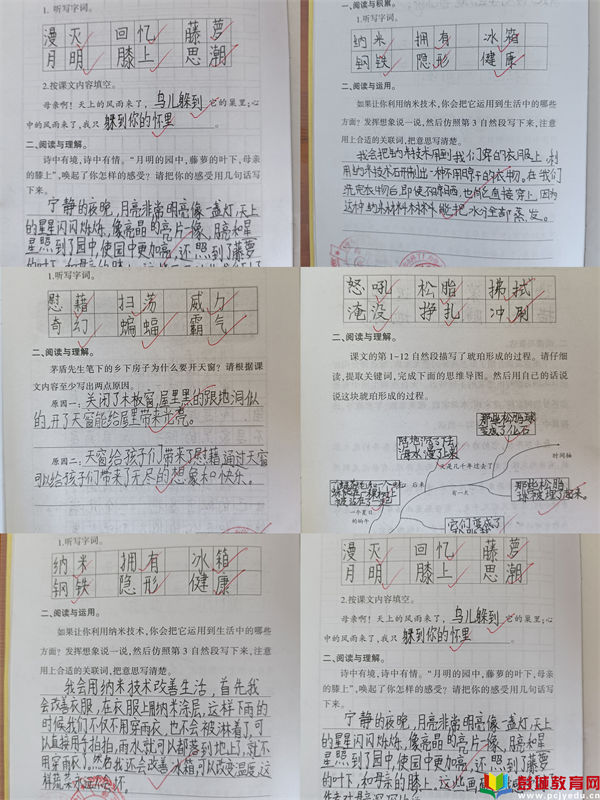 漫灭 回忆 藤萝
月明 膝上 思潮
2.按课文内容填空。
母亲啊!天上的风雨来了,鸟儿躲到它的巢里;心
中的风雨来了,我只躲到你的怀里。
二、阅读与理解。
诗中有境,诗中有情。“月明的园中,藤萝的叶下,母亲
的膝上”,唤起了你怎样的感受?请把你的感受用几句话写
下来。
宁静的夜晚,月亮非常明亮像一盏灯,天上
的星星闪闪烁烁,像亮晶的亮片一像,月亮和星
星照到了园中,使园中更加亮,还照到了藤萝
一、阅读与积累。
1.听写字词。
纳米 拥有 冰箱
钢铁 隐形 健康
二、阅读与运用。
如果让你利用纳米技术,你会把它运用到生活中的哪些
方面?发挥想象说一说,然后仿照第3自然段写下来,注意
用上合适的关联词,把意思写清楚。
我会把纳米技术用到我们穿的衣服上,利
用纳米技术研制出一种不用晾干的衣物。在我们
洗完衣物后,即使不晾晒,也能直接穿上,因为
这种纳米材料本体能把水分全部蒸发。
1.听写字词。
慰藉 扫荡 威力
奇幻 蝙蝠 霸气
二、阅读与理解。
茅盾先生笔下的乡下房子为什么要开天窗?请根据课
文内容至少写出两点原因。
原因一:关闭了木板窗,屋里黑的跟地洞似
的,开了天窗能给屋里带来光亮。
原因二:天窗给孩子们带来了慰藉,通过天窗
可以给孩子们带来了无尽的想象和快乐。
怒吼 松脂 拂拭
淹没 挣扎 冲刷
二、阅读与理解。
课文的第1-12自然段描写了琥珀形成的过程。请仔细
读,提取关键词,完成下面的思维导图。然后用自己的话说
说这块琥珀形成的过程。
那些松脂球
变成了化石
陆地沉下去
海水漫上来
时间轴
又是几千年过去了
后来
有一天
那些松脂
球被埋了起来。
一个夏日
的晌午
1.听写字词。
纳米 拥有 冰箱
钢铁 隐形 健康
二、阅读与运用。
如果让你利用纳米技术,你会把它运用到生活中的哪些
方面?发挥想象说一说,然后仿照第3自然段写下来,注意
用上合适的关联词,把意思写清楚。
我会用纳米技术改善生活,首先我
会改善衣服,在衣服上用纳米涂层,这样下雨的
时候我们不仅不用穿雨衣,也不会被淋着了,可
以直接用手拍拍,雨水就可以都落到地上,就不
用穿雨衣了,然后我还会改善冰箱,可以改变温度,这
漫灭 回忆 藤萝
月明 膝上 思潮
2.按课文内容填空。
母亲啊!天上的风雨来了,鸟儿躲到它的巢里;心
中的风雨来了,我只躲到你的怀里。
二、阅读与理解。
诗中有境,诗中有情。“月明的园中,藤萝的叶下,母亲
的膝上”,唤起了你怎样的感受?请把你的感受用几句话写
下来。
宁静的夜晚,月亮非常明亮像一盏灯,天上
的星星闪闪烁烁,像亮晶的亮片一像,月亮和星
星照到了园中,使园中更加亮,还照到了藤萝
的叶下,和母亲的膝上,这些
彭城教育网
www.pcjyedu.cn